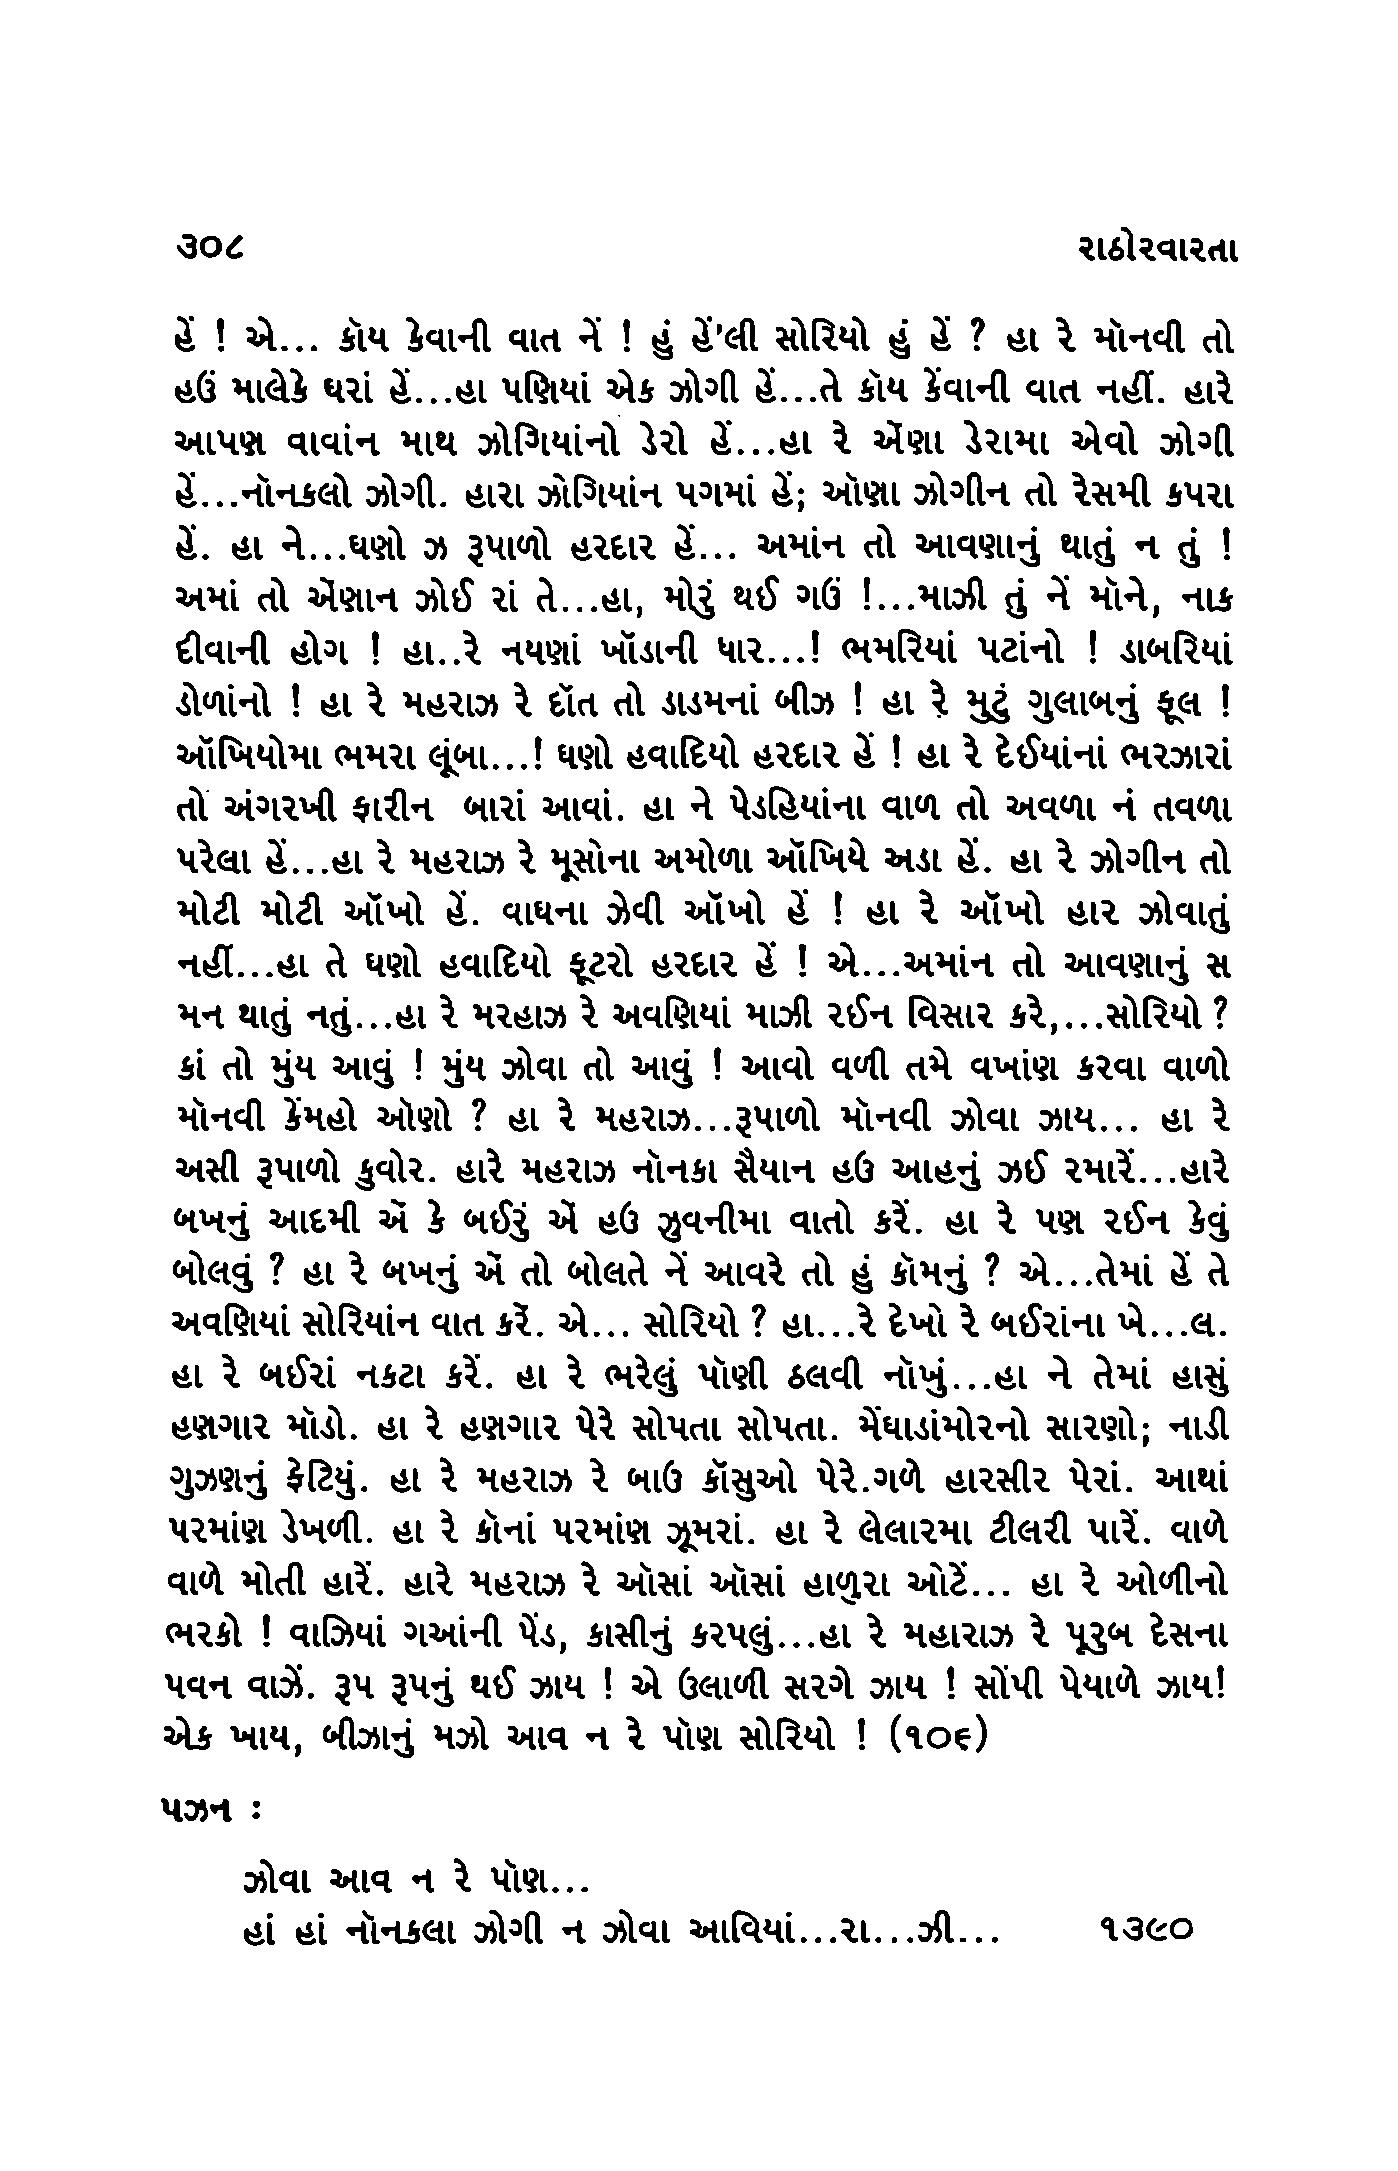 ૩૦૮ રાઠોરવારતા
હેં ! એ... કૉય કેવાની વાત નેં ! હું હેં'લી સોરિયો હું હેં ? હા રે મૉનવી તો
હઉં માલેકે ઘરાં હેં...હા પણિયાં એક ઝોગી હેં...તે કૉય કેંવાની વાત નહીં. હારે
આપણ વાવાંન માથ ઝોગિયાંનો ડેરો હેં...હા રે ઍેણા ડેરામા એવો ઝોગી
હેં...નૉનકલો ઝોગી. હારા ઝોગિયાંન પગમાં હેં; ઑણા ઝોગીન તો રેસમી કપરા
હેં. હા ને...ઘણો ઝ રૂપાળો હરદાર હેં... અમાંન તો આવણાનું થાતું ન તું !
અમાં તો ઍેણાન ઝોઈ રાં તે...હા, મોરું થઈ ગઉં !...માઝી તું નેં મૉને, નાક
દીવાની હોગ ! હા..રે નયણાં ખૉડાની ધાર...! ભમરિયાં પટાંનો ! ડાબરિયાં
ડોળાંનો ! હા રે મહરાઝ રે દૉત તો ડાડમનાં બીઝ ! હા રે મુટું ગુલાબનું ફૂલ !
ઑખિયોમા ભમરા લૂંબા...! ઘણો હવાદિયો હરદાર હેં ! હા રે દેઈયાંનાં ભરઝારાં
તો અંગરખી ફારીન બારાં આવાં. હા ને પેડહિયાંના વાળ તો અવળા નં તવળા
પરેલા હેં...હા રે મહરાઝ રે મૂસોના અમોળા ઑખિયે અડા હેં. હા રે ઝોગીન તો
મોટી મોટી ઑખો હેં. વાઘના ઝેવી ઑખો હેં ! હા રે ઑખો હાર ઝોવાતું
નહીં...હા તે ઘણો હવાદિયો ફૂટરો હરદાર હેં ! એ...અમાંન તો આવણાનું સ
મન થાતું નતું...હા રે મરહાઝ રે અવણિયાં માઝી રઈન વિસાર કરે,...સોરિયો ?
કાં તો મુંય આવું ! મુંય ઝોવા તો આવું ! આવો વળી તમે વખાંણ કરવા વાળો
મૉનવી કેંમહો ઑણો ? હા રે મહરાઝ...રૂપાળો મૉનવી ઝોવા ઝાય... હા રે
અસી રૂપાળો કુવોર. હારે મહરાઝ નૉનકા સૈયાન હઉ આહનું ઝઈ રમારેં...હારે
બખનું આદમી ઍં કે બઈરું ઍં હઉ ઝુવનીમા વાતો કરેં. હા રે પણ રઈન કેવું
બોલવું ? હા રે બખનું ઍં તો બોલતે નેં આવરે તો હું કૉમનું ? એ...તેમાં હેં તે
અવણિયાં સોરિયાંન વાત કરેં. એ... સોરિયો ? હા...રે દેખો રે બઈરાંના ખે...લ.
હા રે બઈરાં નકટા કરેં. હા રે ભરેલું પૉણી ઠલવી નૉખું...હા ને તેમાં હાસું
હણગાર મૉડો. હા રે હણગાર પેરે સોપતા સોપતા. મેંઘાડાંમોરનો સારણો; નાડી
ગુઝણનું ફેટિયું. હા રે મહરાઝ રે બાઉ કૉસુઓ પેરે.ગળે હારસીર પેરાં. આથાં
પરમાંણ ડેખળી. હા રે કૉનાં પરમાંણ ઝૂમરાં. હા રે લેલારમા ટીલરી પારેં. વાળે
વાળે મોતી હારેં. હારે મહરાઝ રે ઑસાં ઑસાં હાળુરા ઓટેં... હા રે ઓળીનો
ભરકો ! વાઝિયાં ગઆંની પેંડ, કાસીનું કરપલું...હા રે મહારાઝ રે પૂરુબ દેસના
પવન વાઝેં. રૂપ રૂપનું થઈ ઝાય ! એ ઉલાળી સરગે ઝાય ! સોંપી પેયાળે ઝાય!
એક ખાય, બીઝાનું મઝો આવ ન રે પૉણ સોરિયો ! (૧૦૬)
પઝન :
ઝોવા આવ ન રે પૉણ...
હાં હાં નૉનકલા ઝોગી ન ઝોવા આવિયાં...રા...ઝી... ૧૩૯૦